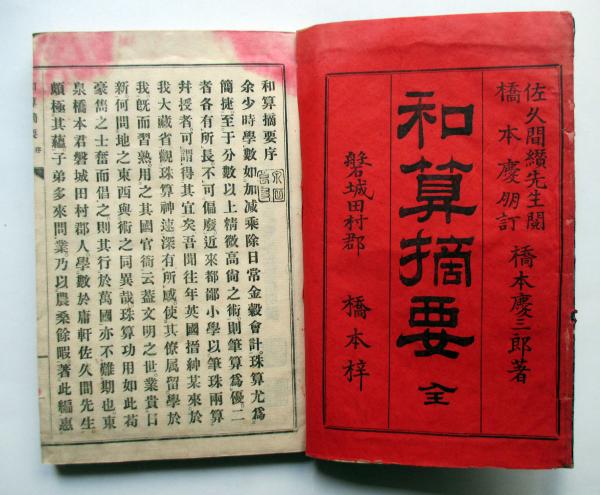 佐久間纉先生閲
橋本慶明訂
橋本慶三郎著
和算摘要 全
磐城田村郡
橋本梓
和算摘要序
余少時學數如加减乘除日常金穀會計珠算尤爲
簡捷至于分數以上精微高尙之術則筆算爲優二
者各有所長不可偏廢近來都鄙小學以筆珠兩算
幷授者可謂得其宜矣吾聞往年英國搢紳某來於
我大藏省觀珠算神速深有所感使其僚属留學於
我旣而習熟用之其國官衙云蓋文明之世業貴日
新何問地之東西與術之同異哉珠算功用如此苟
豪雋之士奮而倡之則其行於萬國亦不難期也東
泉橋本君磐城田村郡人學數於庸軒佐久間先生
頗極其蘊子弟多來問業乃以農桑餘暇著此編惠